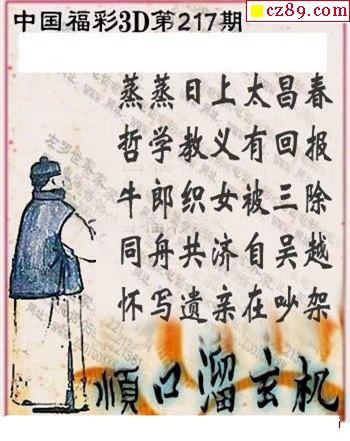 cz89.com
中国福彩3D第217期
蒸蒸日上太昌春
哲学教义有回报
牛郎织女被三除
同舟共济自吴越
怀写遗亲在吵架
順口溜玄机